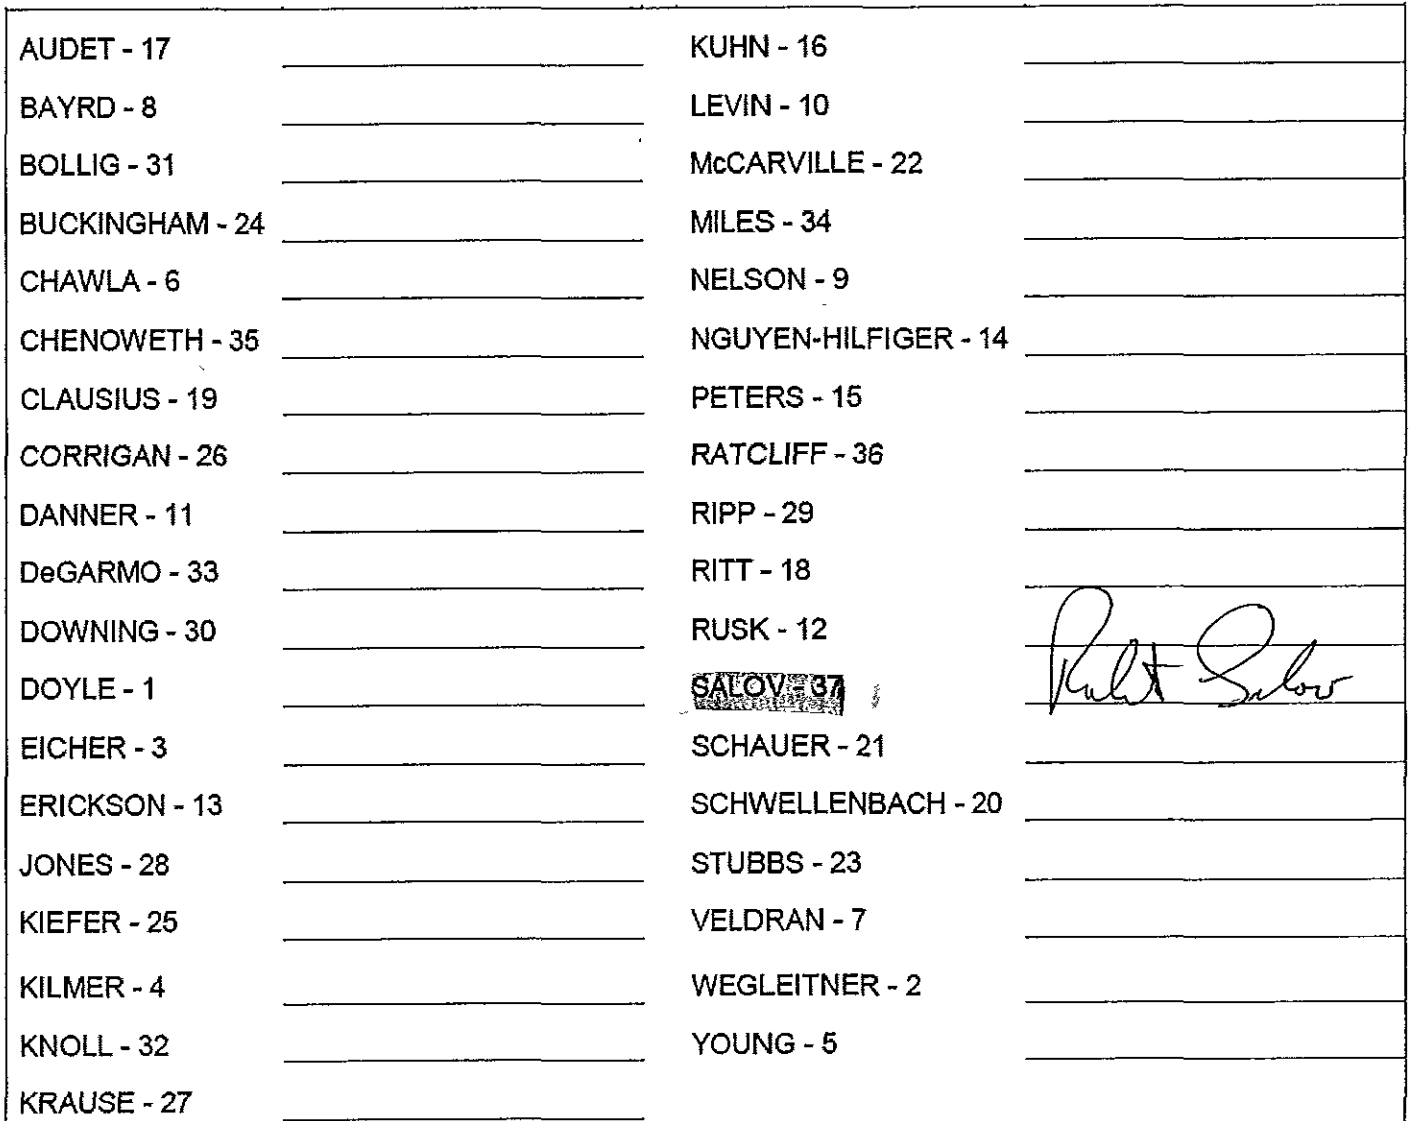 AUDET - 17
BAYRD - 8
BOLLIG - 31
BUCKINGHAM - 24
CHAWLA - 6
CHENOWETH - 35
CLAUSIUS - 19
CORRIGAN - 26
DANNER - 11
DeGARMO - 33
DOWNING - 30
DOYLE - 1
EICHER - 3
ERICKSON - 13
JONES - 28
KIEFER - 25
KILMER - 4
KNOLL - 32
KRAUSE - 27
KUHN - 16
LEVIN - 10
McCARVILLE - 22
MILES - 34
NELSON - 9
NGUYEN-HILFIGER - 14
PETERS - 15
RATCLIFF - 36
RIPP - 29
RITT - 18
RUSK - 12
SALOV - 37 Salov
SCHAUER - 21
SCHWELLENBACH - 20
STUBBS - 23
VELDRAN - 7
WEGLEITNER - 2
YOUNG - 5